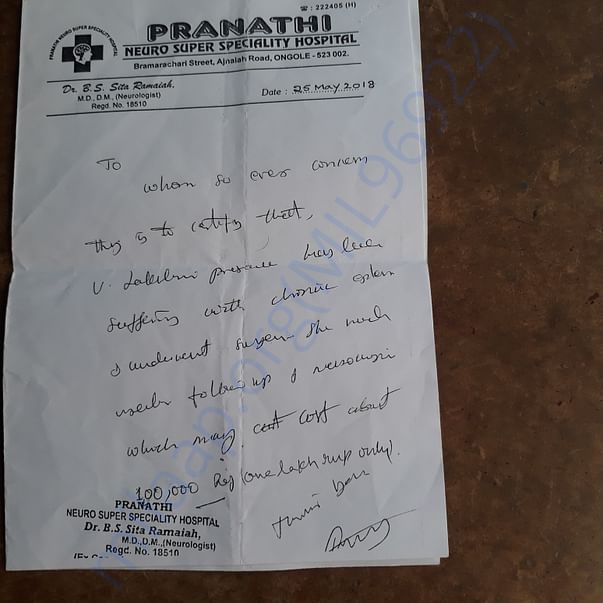 ☎ : 222405 (H)
PRANATHI NEURO SUPER SPECIALITY HOSPITAL
PRANATHI
NEURO SUPER SPECIALITY HOSPITAL
Bramarachari Street, Anjaiah Road, ONGOLE - 523 002.
Dr. B.S. Sita Ramaiah,
M.D., D.M., (Neurologist)
Regd. No. 18510
Date : 25 May 2018
To
whom so ever concern
this is to certify that,
V. Lakshmi has been
suffering with chronic
& underwent she
follow up &
which may cost about
100,000 Rs (one lakh rup only).
PRANATHI
NEURO SUPER SPECIALITY HOSPITAL
Dr. B.S. Sita Ramaiah,
M.D.,D.M.,(Neurologist)
Regd. No. 18510